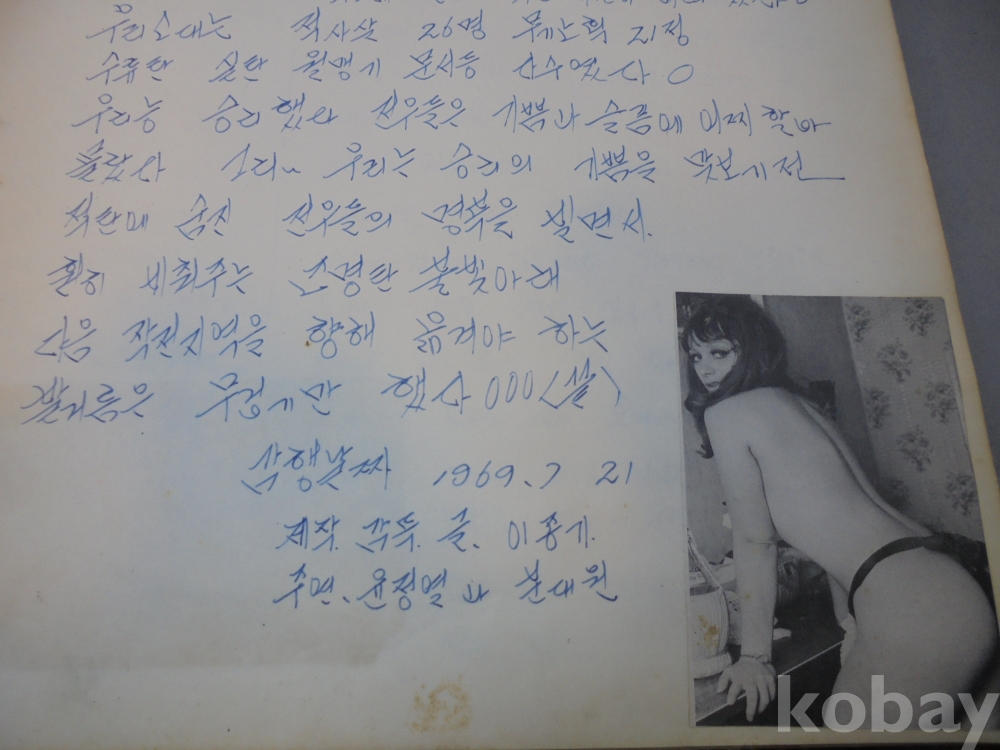 우리소대는 적사살 26명 무기노획 21정
수류탄 실탄 월맹기 문서등 다수였다 0
우리는 승리했다 전우들은 기쁨과 슬픔에 어찌할바
몰랐다 그러나 우리는 승리의 기쁨을 맛보기전
적탄에 숨진 전우들의 명복을 빌면서.
훤히 비춰주는 조명탄 불빛아래
다음 작전지역을 향해 옮겨야 하는
발걸음은 무겁기만 했다 000 (끝)
삼행날짜 1969.7 21
제작. 감독. 글. 이종기.
주연. 윤정열 과 분대원
kobay